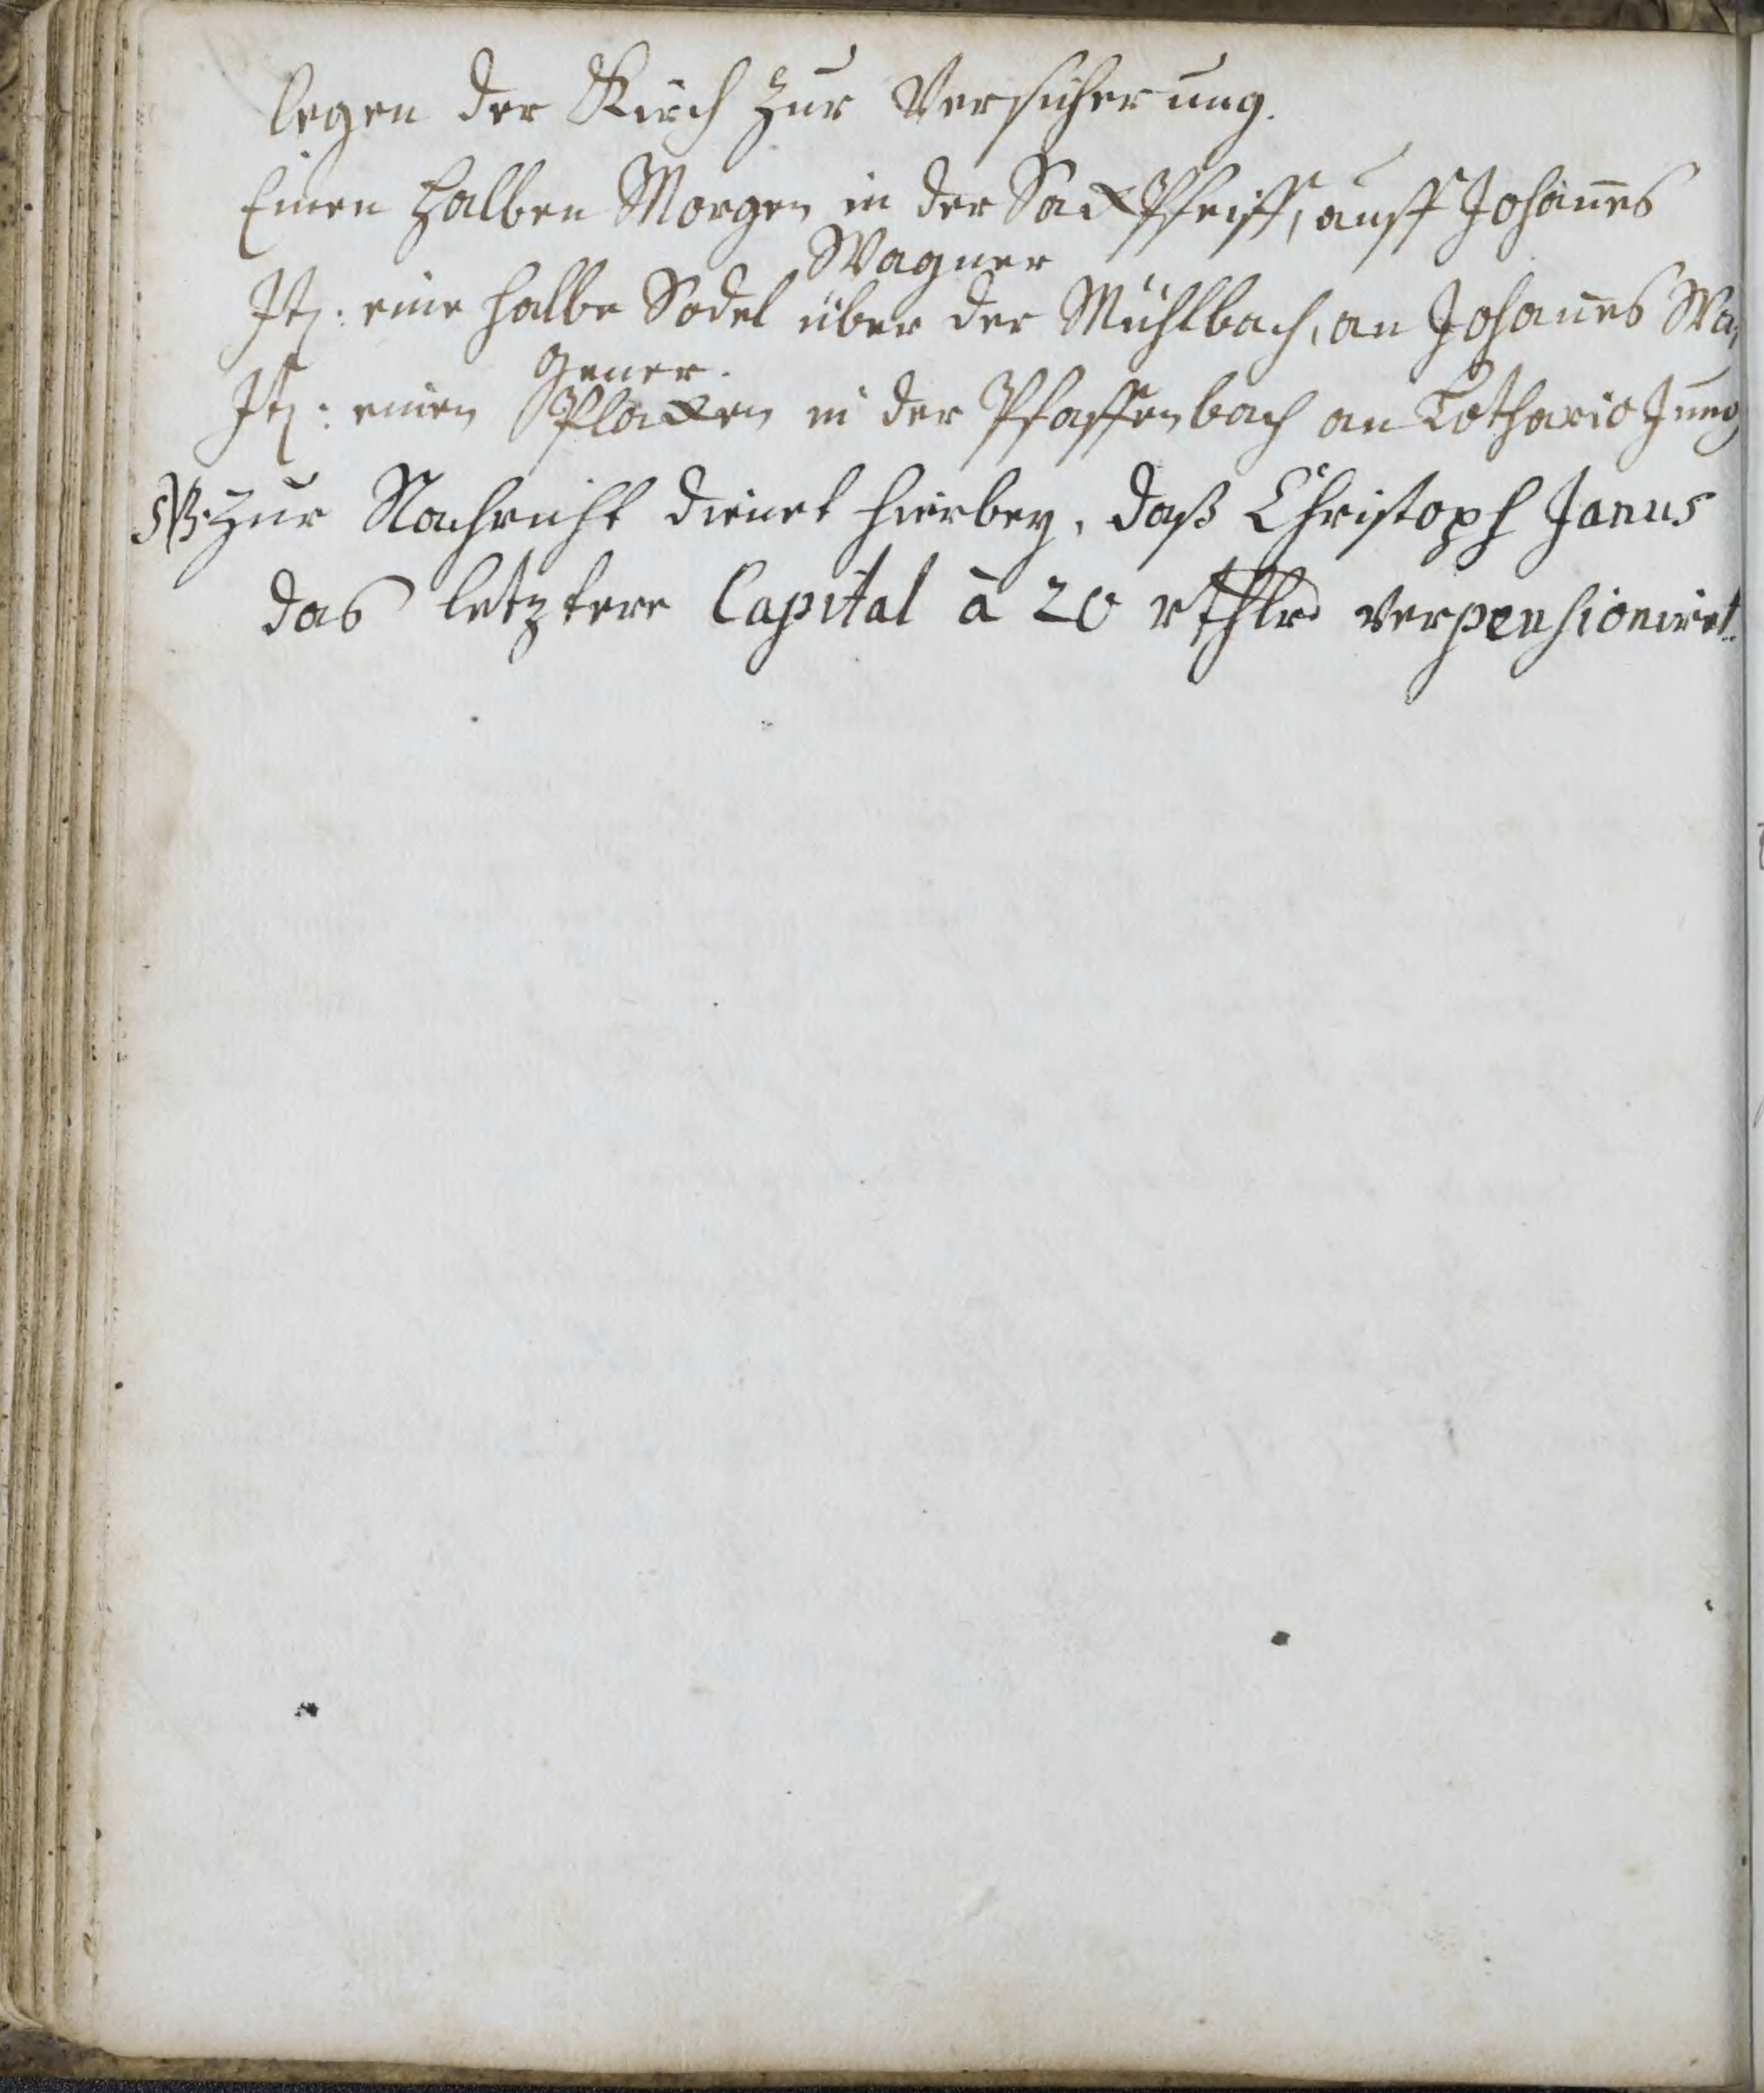 legen der Kirch zur Versicherung.
Einen halben Morgen in der SackPfeiff, auff Johan̄es
Wagner
It: eine halbe Sodel über der Mühlbach, an Johan̄es Wa,
gener.
It: einen Placken in der Pfaffenbach an Lothario Jung
NB. Zur Nachricht dienet hierbey, daß Christoph Janus
das letztere Capital à 20 rthlr verpensioniret.